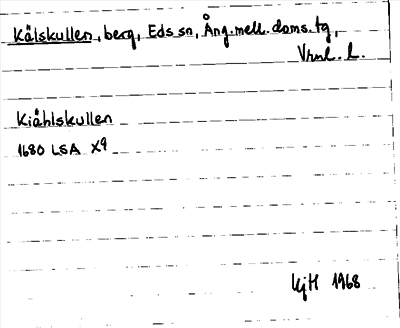 Kålskullen, berg, Eds sn, Ång. mell. doms. tg,
Vrml. l.
Kiåhlskullen
1680 LSA X9
KjH 1968